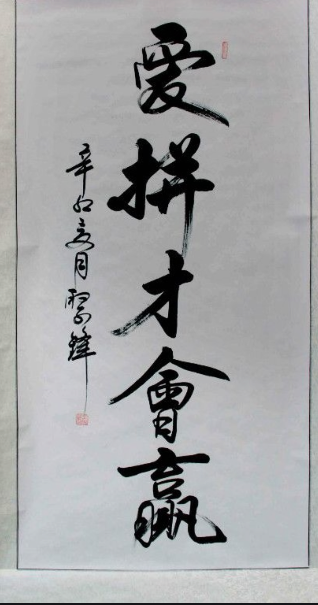 愛拼才會贏
辛卯夏月